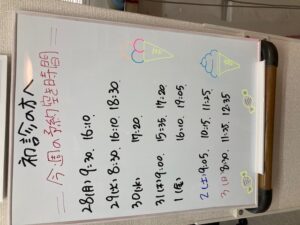 初診の方へ
＝今週の予約空き時間＝
28(月) 9:30. 16:10
29(火) 8:30. 10:10 18:30
30(水) 17:20
31(木) 9:00. 15:35. 17:20
1(金) 16:10. 19:05
2(土) 9:05. 10:15. 11:25
3(日) 8:30. 11:25 12:35